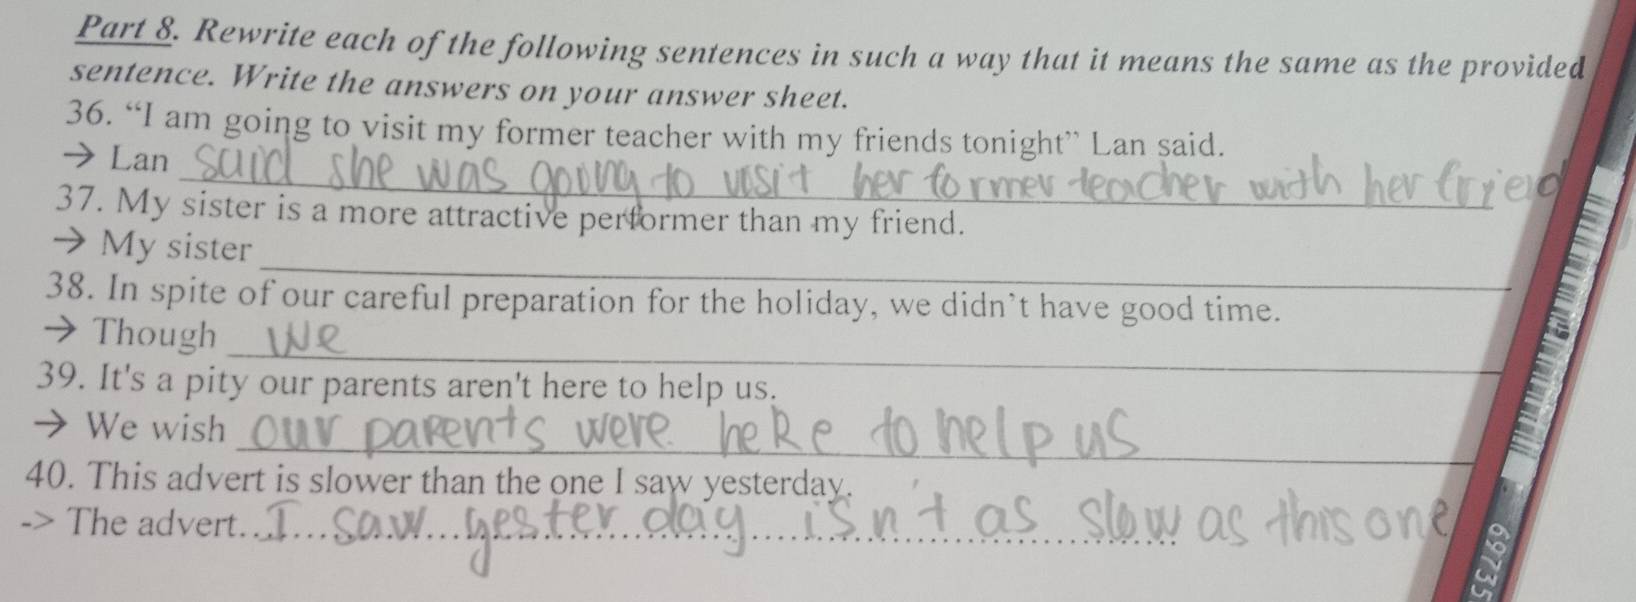 Part 8. Rewrite each of the following sentences in such a way that it means the same as the provided
sentence. Write the answers on your answer sheet.
36. “I am going to visit my former teacher with my friends tonight” Lan said.
→ Lan said she was going to visit her former teacher with her friend
37. My sister is a more attractive performer than my friend.
→ My sister
38. In spite of our careful preparation for the holiday, we didn’t have good time.
→ Though we
39. It's a pity our parents aren't here to help us.
→ We wish our parents were here to help us
40. This advert is slower than the one I saw yesterday.
-> The advert...I...saw...yesterday.....isn't as slow as this one
69735